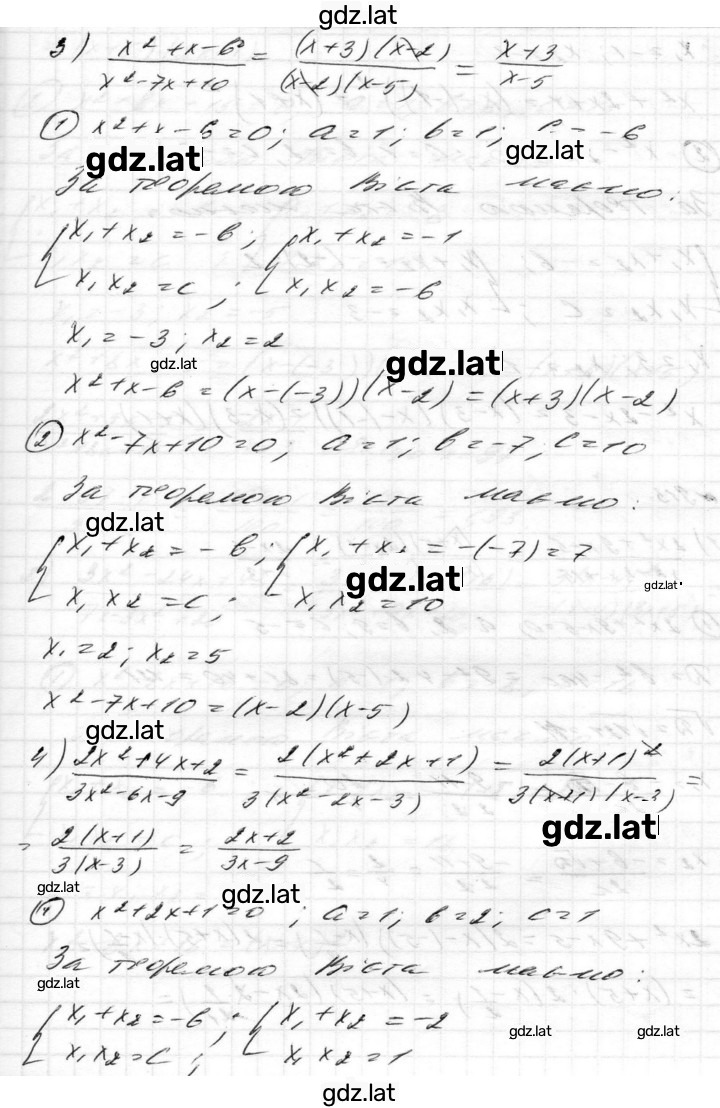 gdz.lat
3) (x² + x - 6)/(x² - 7x + 10) = ((x+3)(x-2))/((x-2)(x-5)) = (x+3)/(x-5)
① x² + x - 6 = 0; a = 1; b = 1; c = -6
gdz.lat gdz.lat
За теоремою Вієта маємо:
{ x₁ + x₂ = -b; { x₁ + x₂ = -1
x₁ x₂ = c; x₁ x₂ = -6
x₁ = -3; x₂ = 2
gdz.lat gdz.lat
x² + x - 6 = (x - (-3))(x - 2) = (x + 3)(x - 2)
② x² - 7x + 10 = 0; a = 1; b = -7; c = 10
За теоремою Вієта маємо:
gdz.lat
{ x₁ + x₂ = -b; { x₁ + x₂ = -(-7) = 7
gdz.lat gdz.lat
x₁ x₂ = c; x₁ x₂ = 10
x₁ = 2; x₂ = 5
x² - 7x + 10 = (x - 2)(x - 5)
gdz.lat
4) (2x² + 4x + 2)/(3x² - 6x - 9) = (2(x² + 2x + 1))/(3(x² - 2x - 3)) = (2(x+1)²)/(3(x+1)(x-3)) =
gdz.lat
= (2(x+1))/(3(x-3)) = (2x+2)/(3x-9)
gdz.lat gdz.lat
① x² + 2x + 1 = 0; a = 1; b = 2; c = 1
За теоремою Вієта маємо:
gdz.lat
{ x₁ + x₂ = -b; { x₁ + x₂ = -2
gdz.lat gdz.lat
x₁ x₂ = c; x₁ x₂ = 1
gdz.lat